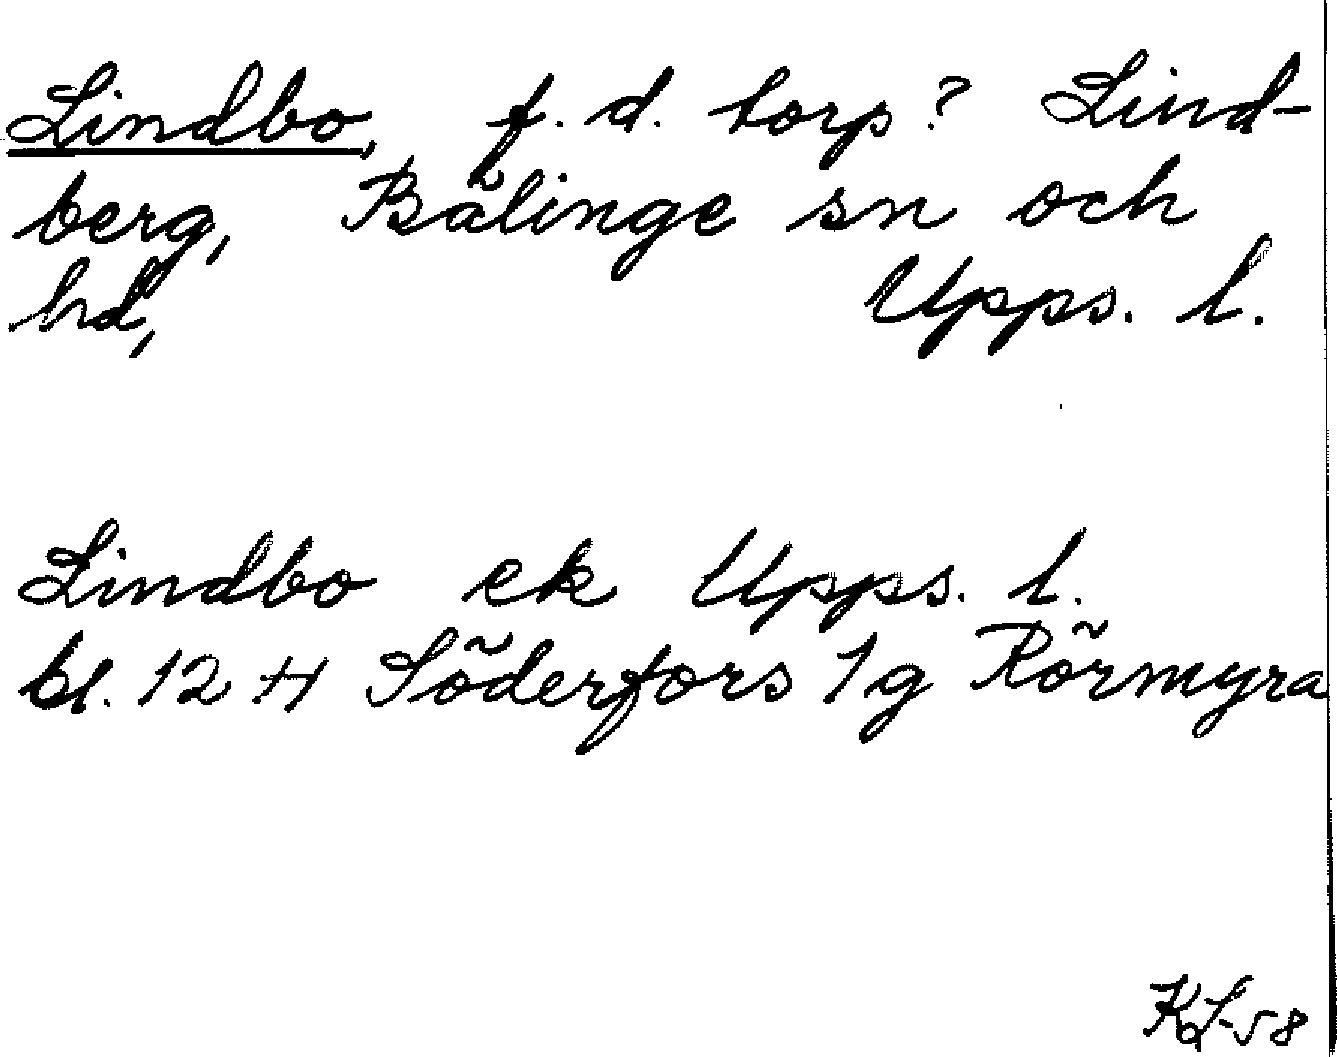 Lindbo, f. d. torp? Lind-
berg, Bälinge sn och
hd, Upps. l.
Lindbo ek Upps. l.
bl. 12 H Söderfors 1g Rörmyra
KL-58